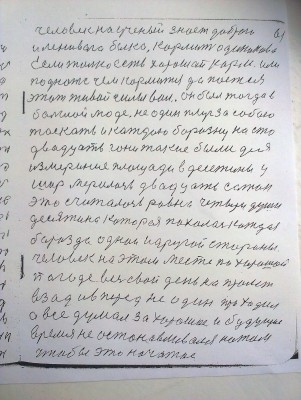 человек научный знает доброго
и ленивого быка, кормит одинаково
если только есть хороший корм. или
чем кормить да
этот живой силы вам. он был тогда в
большой моде, не один плуг за собою
таскать и каждою борозну на сто
двадцать гони такие были для
измерения площади в десятины у
шир мерилось двадцать сажен
это считалось равна четверти души
десятина которая пахалась каждая
борозда одной и другой стороны
человек на этом месте по хорошой
погоде весь свой день на пролет
взад и в перед не один проходил
о все думал за хорошие и будущие
время не останавливался потом
чтобы это начатое